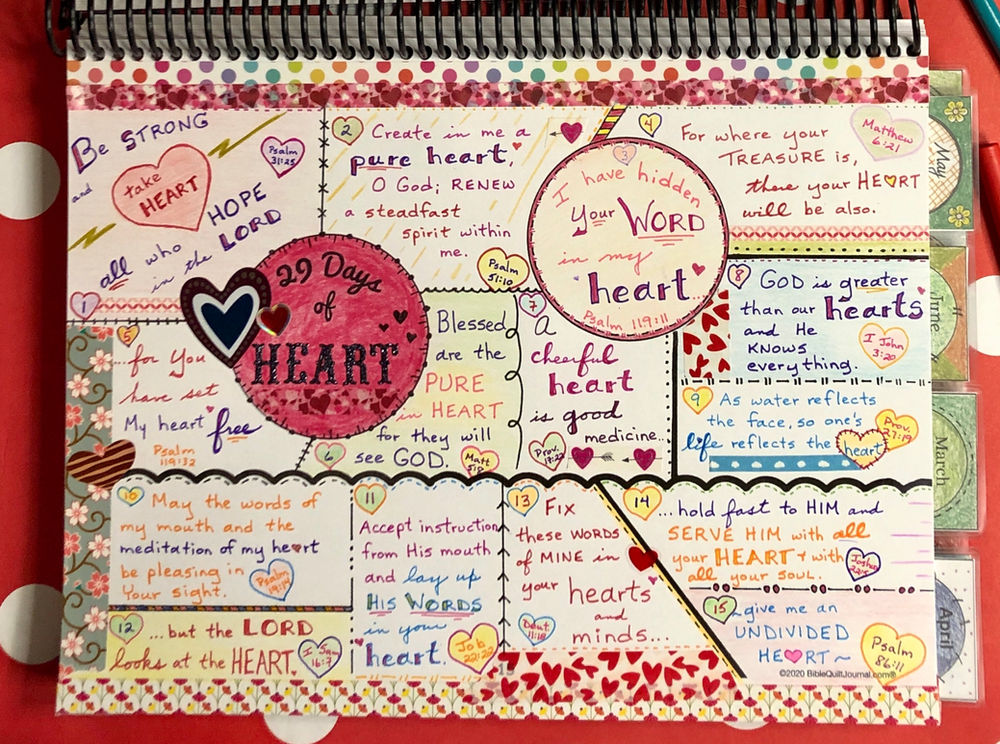 Be STRONG
and
take
HEART
Psalm
31:25
all who HOPE
in the LORD
1
29 Days
of
HEART
2
Create in me a
pure heart,
O God; RENEW
a steadfast
spirit within
me.
Psalm
51:10
3
I have hidden
your WORD
in my
heart...
Psalm 119:11
4
For where your
TREASURE is,
there your HEART
will be also.
Matthew
6:21
5
...for You
have set
My heart free
Psalm
119:32
6
Blessed
are the
PURE
in HEART
for they will
see GOD.
Matt
5:8
7
A
cheerful
heart
is good
medicine...
Prov.
17:22
8
GOD is greater
than our hearts
and He
KNOWS
everything.
I John
3:20
9
As water reflects
the face, so one's
life reflects the heart
Prov.
27:19
10
May the words of
my mouth and the
meditation of my heart
be pleasing in
Your sight.
Psalm
19:14
11
Accept instruction
from His mouth
and lay up
HIS WORDS
in your
heart.
Job
22:22
12
...but the LORD
looks at the HEART.
I Sam
16:7
13
FIX
these WORDS
of MINE in
your hearts
and
minds...
Deut
11:18
14
...hold fast to HIM and
SERVE HIM with all
your HEART + with
all your SOUL.
Joshua
22:5
15
give me an
UNDIVIDED
HEART ~
Psalm
86:11
©2020 BibleQuiltJournal.com®
May
June
March
April